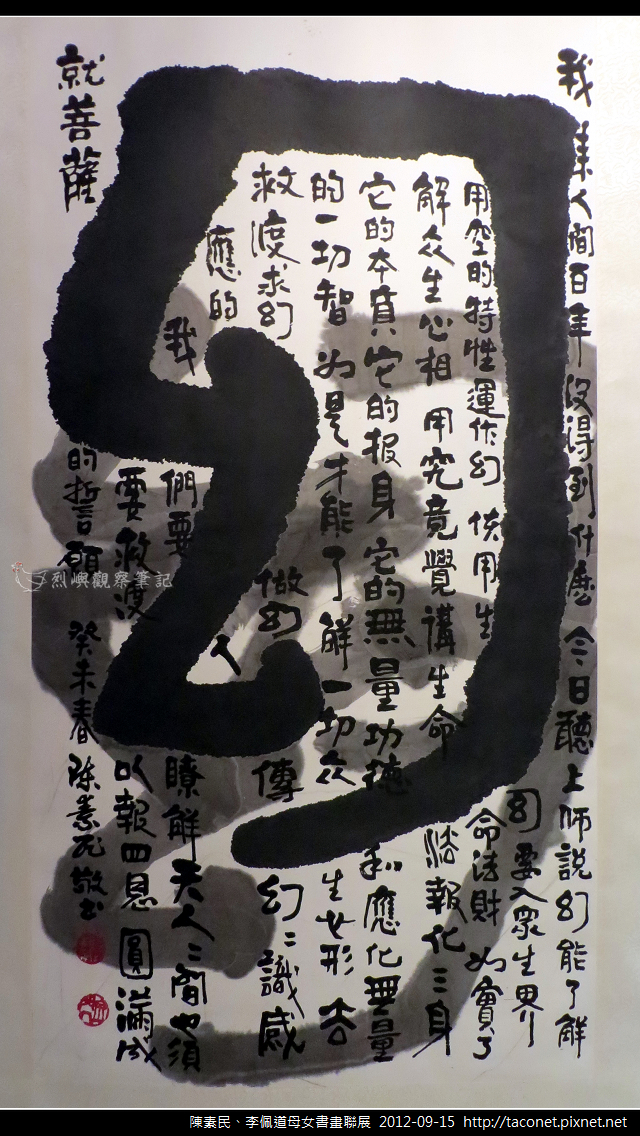 幻
我集人間百年沒得到什麼今日聽上師說幻能了解
幻要入眾生界
用空的特性運作幻 供用生命法財如實了
解众生心相用究竟覺講生命 法報化三身
它的本質它的报身它的無量功德和應化無量
的一切智如是才能了解一切众生女形去
救渡求幻 做幻人 傳幻二識感
應的
我們要瞭解天人二間也須
要救渡 以報四恩圓滿成
就菩薩的誓願 癸未春陳素民敬书
烈嶼觀察筆記
陳素民、李佩道母女書畫聯展 2012-09-15 http://taconet.pixnet.net